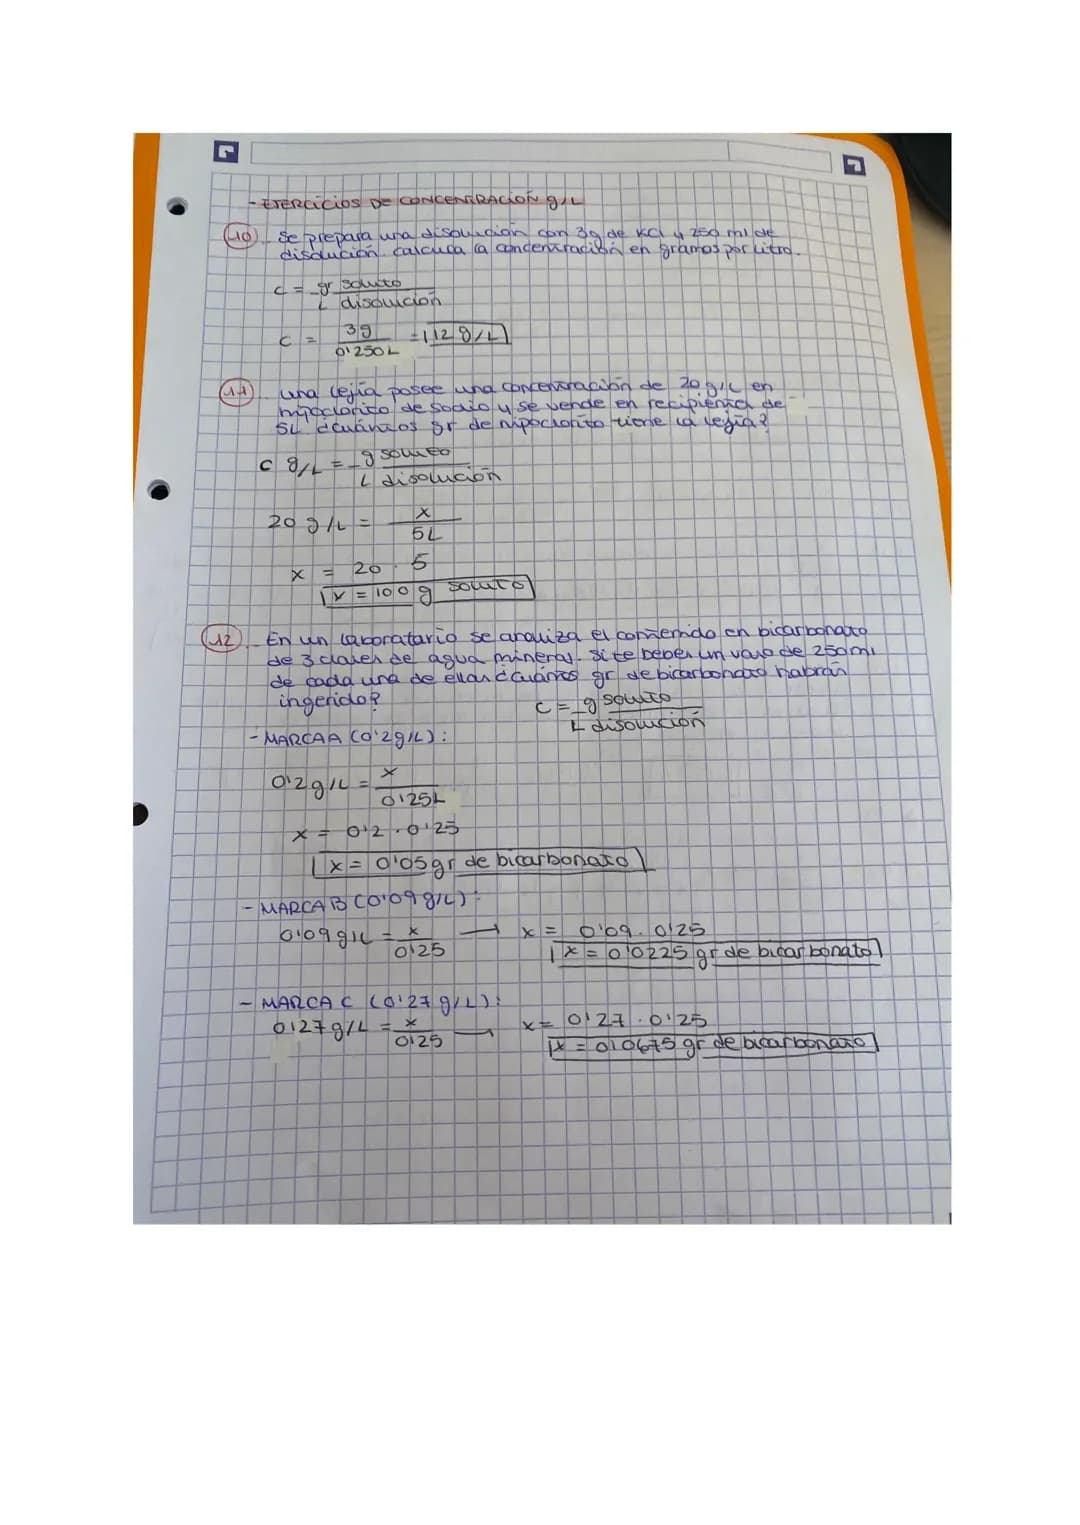 - EJERCICIOS DE CONCENTRACIÓN g/L
10. Se prepara una disolución con 3g de KCl y 250 ml de
disolución. calcula la concentración en gramos por litro.
c = gr soluto
L disolución
c = 3g = 12 g/L
0'250L
11. una lejía posee una concentración de 20 g/L en
hipoclorito de sodio y se vende en recipientes de
5L ¿cuántos gr de hipoclorito tiene la lejía?
c g/L = g soluto
L disolución
20 g/L = x
5L
x = 20 · 5
x = 100 g soluto
12. En un laboratorio se analiza el contenido en bicarbonato
de 3 clases de agua mineral. Si te bebes un vaso de 250ml
de cada una de ellas ¿cuántos gr de bicarbonato habrán
ingerido?
c = g soluto
L disolución
- MARCA A (0'2g/L):
0'2g/L = x
0'25L
x = 0'2 · 0'25
x = 0'05gr de bicarbonato
- MARCA B (0'09g/L):
0'09g/L = x → x = 0'09 · 0'25
0'25
x = 0'0225 gr de bicarbonato
- MARCA C (0'27 g/L):
0'27g/L = x → x = 0'27 · 0'25
0'25
x = 0'0675 gr de bicarbonato